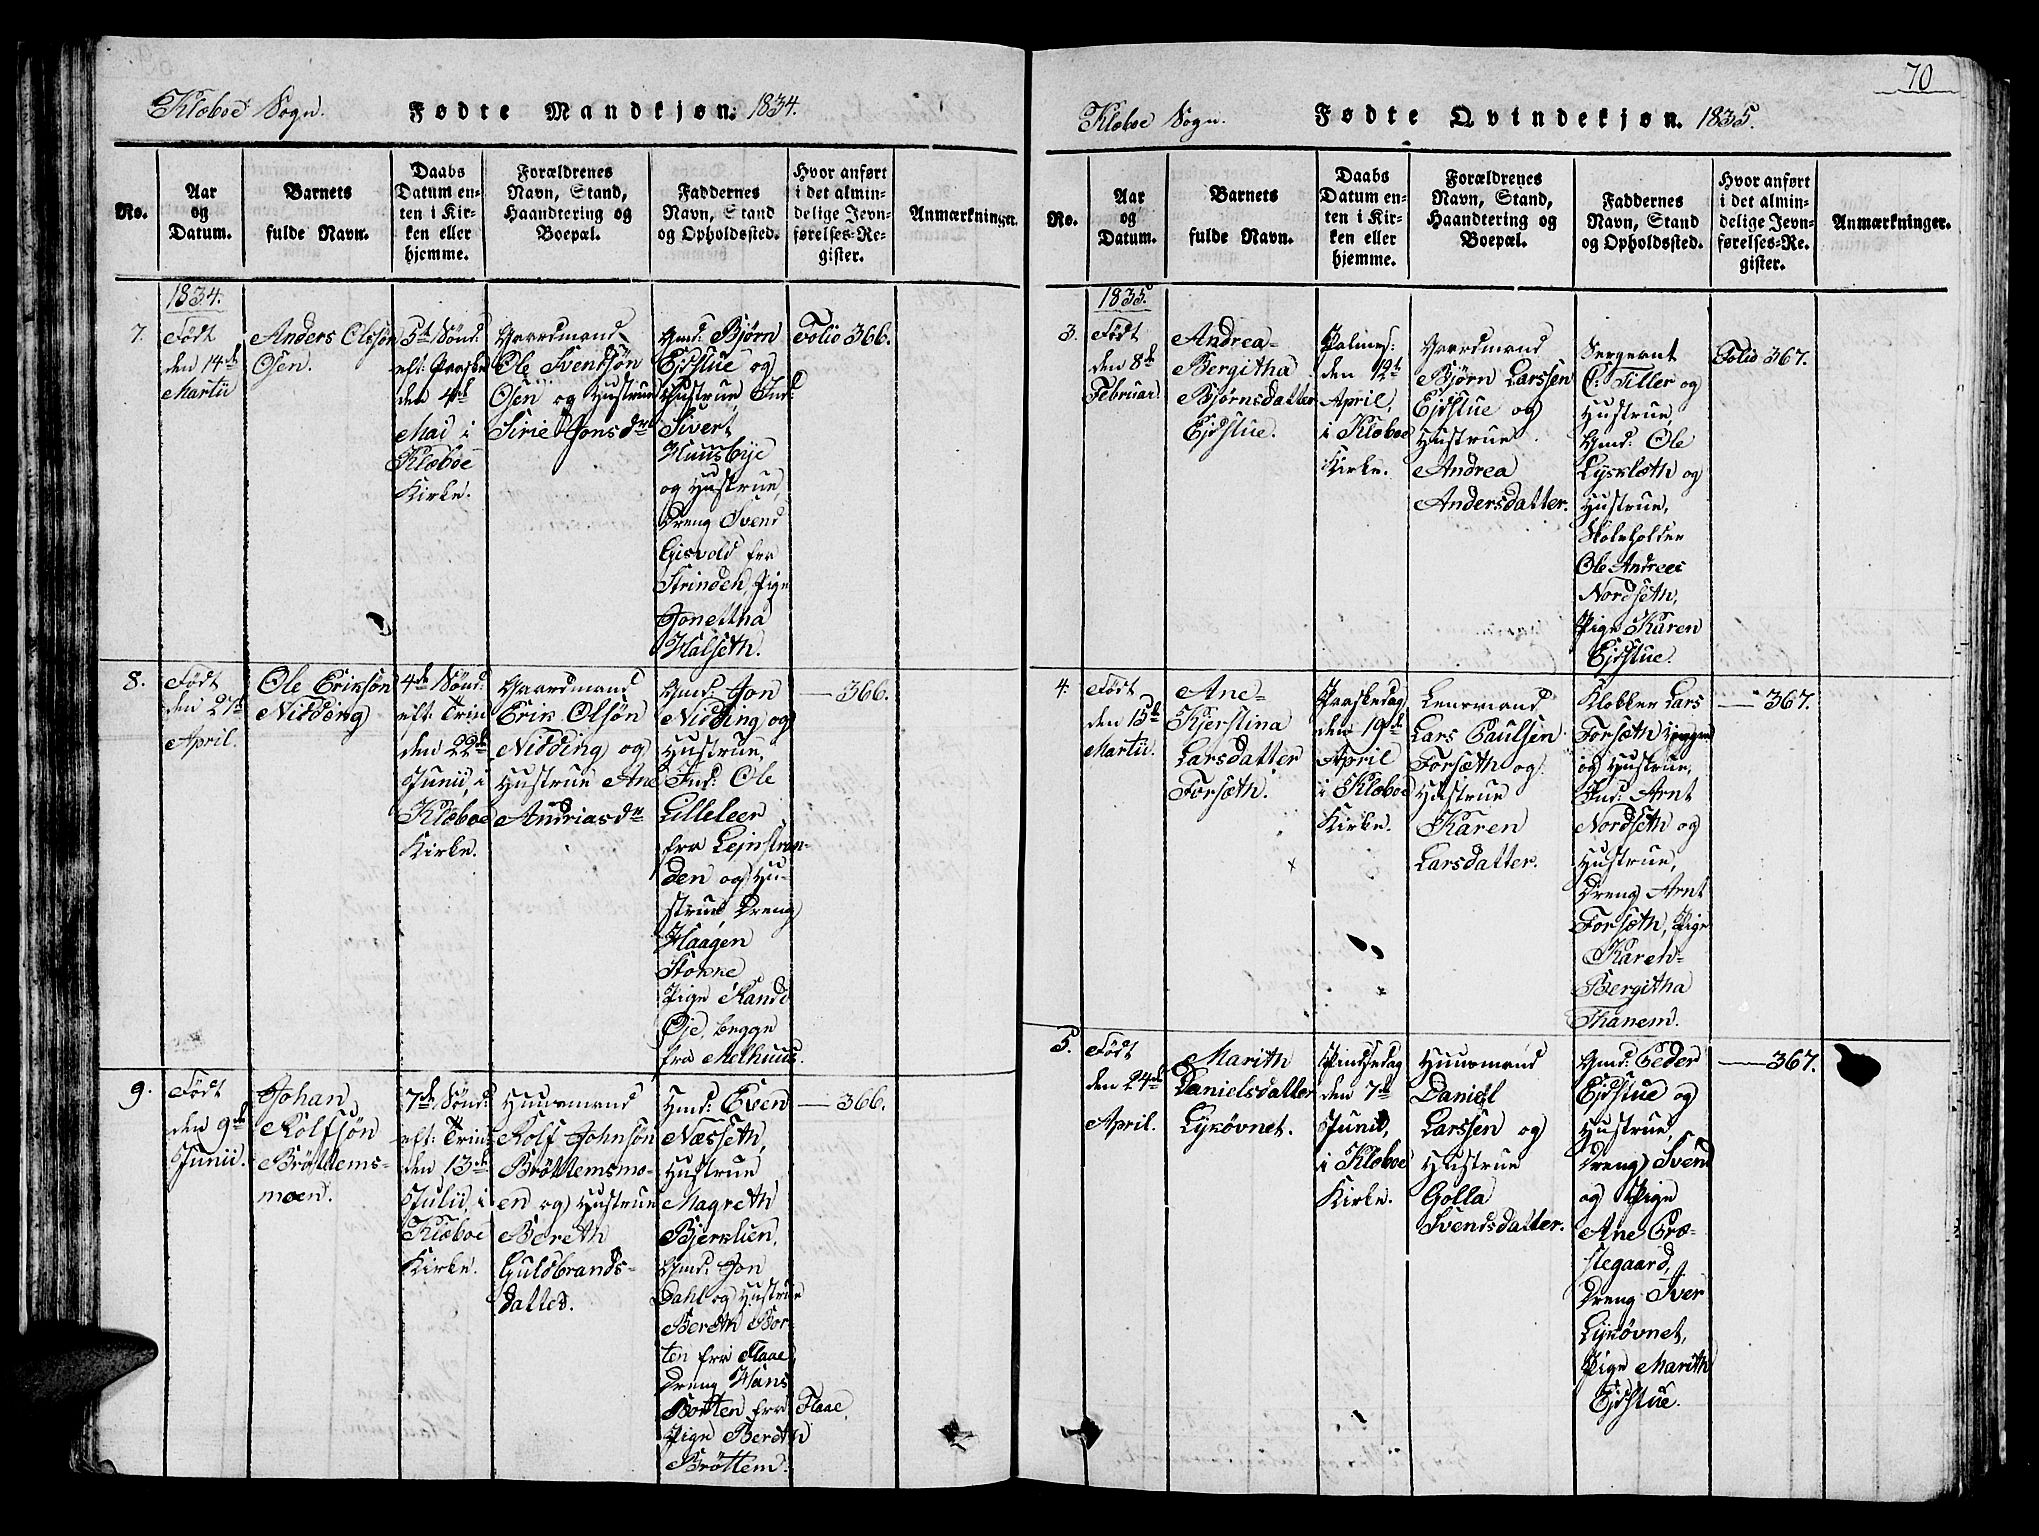 Klæboe Sogn. Fødte Mandkjøn. 1834.
No.
Aar
og
Datum.
Barnets
fulde Navn.
Daabs
Datum en-
ten i Kir-
ken eller
hjemme.
Forældrenes
Navn, Stand,
Haandtering og
Boepæl.
Faddernes
Navn, Stand
og Opholdssted.
Hvor anført
i det almin-
delige Jevn-
førelses-Re-
gister.
Anmærkninger.
1834.
7.
Født
den 14de
Martii
Anders Olssøn
Osen.
5te Sønd:
eft: Paaske
den 4de
Mai i
Klæboe
Kirke.
Gaardmand
Ole Svendsøn
Osen og Hustrue
Sirie Jonsdtr
Gmd: Bjørn
Ejdstue og
Hustrue, Ind:
Sivert
Huusbye
og Hustrue,
Dreng Svend
Gisvold fra
Strinden, Pige
Jonettha
Halseth.
Folio 366.
8.
Født
den 27de
April.
Ole Eriksøn
Nidding
4de Sønd:
eft: Trin
den 22de
Junii, i
Klæboe
Kirke.
Gaardmand
Erik Olsøn
Nidding og
Hustrue Ane
Andriasdtr
Gmd: Jon
Nidding og
Hustrue,
Ind: Ole
Lilleleer
fra Lejnstran-
den og Hu-
strue, Dreng
Haagen
Storre
Pige Randi
Øje, begge
fra Melhuus.
— 366.
9.
Født
den 9de
Junii.
Johan
Rolfsøn
Brøttems-
moen.
7de Sønd:
eft: Trin:
den 13de
Julii, i
Klæboe
Kirke.
Huusmand
Rolf Johnsøn
Brøttemsmo-
en og Hustrue
Bereth
Guldbrands-
datter.
Gmd: Even
Næsseth,
Hustrue
Magreth
Bjerklien,
Gmd: Jon
Dahl og Hustrue
Bereth Bor-
ten fra Flaae,
Dreng Hans
Borten fra Flaae,
Pige Bereth
Brøttem.
— 366.
70
Klæboe Sogn. Fødte Qvindekjøn. 1835.
No.
Aar
og
Datum.
Barnets
fulde Navn.
Daabs
Datum en-
ten i Kir-
ken eller
hjemme.
Forældrenes
Navn, Stand,
Haandtering og
Boepæl.
Faddernes
Navn, Stand
og Opholdssted.
Hvor anført
i det almin-
delige Jevn-
førelses-Re-
gister.
Anmærkninger.
1835.
3.
Født
den 8de
Februar.
Andrea-
Bergitha
Bjørnsdatter
Ejdstue.
Palmes:
den 12te
April,
i Klæboe
Kirke.
Gaardmand
Bjørn Larssen
Ejdstue og
Hustrue
Andrea
Andersdatter.
Sergeant
O: Tiller og
Hustrue,
Gmd: Ole
Lysklæth og
Hustrue,
Skoleholder
Ole Andreas
Nordseth,
Pige Karen
Ejdstue.
Folio 367.
4.
Født
den 15de
Martii.
Ane-
Kjerstina
Larsdatter
Forsæth.
Paaskedag
den 19de
April
i Klæboe
Kirke.
Lensmand
Lars Paulsen
Forsæth og
Hustrue
Karen
Larsdatter.
Klokker Lars
Forsæth
og Hustrue,
Ind: Arnt
Nordseth og
Hustrue,
Dreng Arnt
Forsæth, Pige
Karen-
Bergitha
Thanem.
— 367.
5.
Født
den 24de
April.
Marith
Danielsdatter
Lysøvnet.
Pindsedag
den 7de
Junii,
i Klæboe
Kirke.
Huusmand
Daniel
Larssen og
Hustrue
Golla
Svendsdatter.
Gmd: Peder
Ejdstue og
Hustrue,
Dreng Svend
og Pige
Ane Præ-
stegaard,
Dreng Iver
Lysøvnet,
Pige Marith
Ejdstue.
— 367.